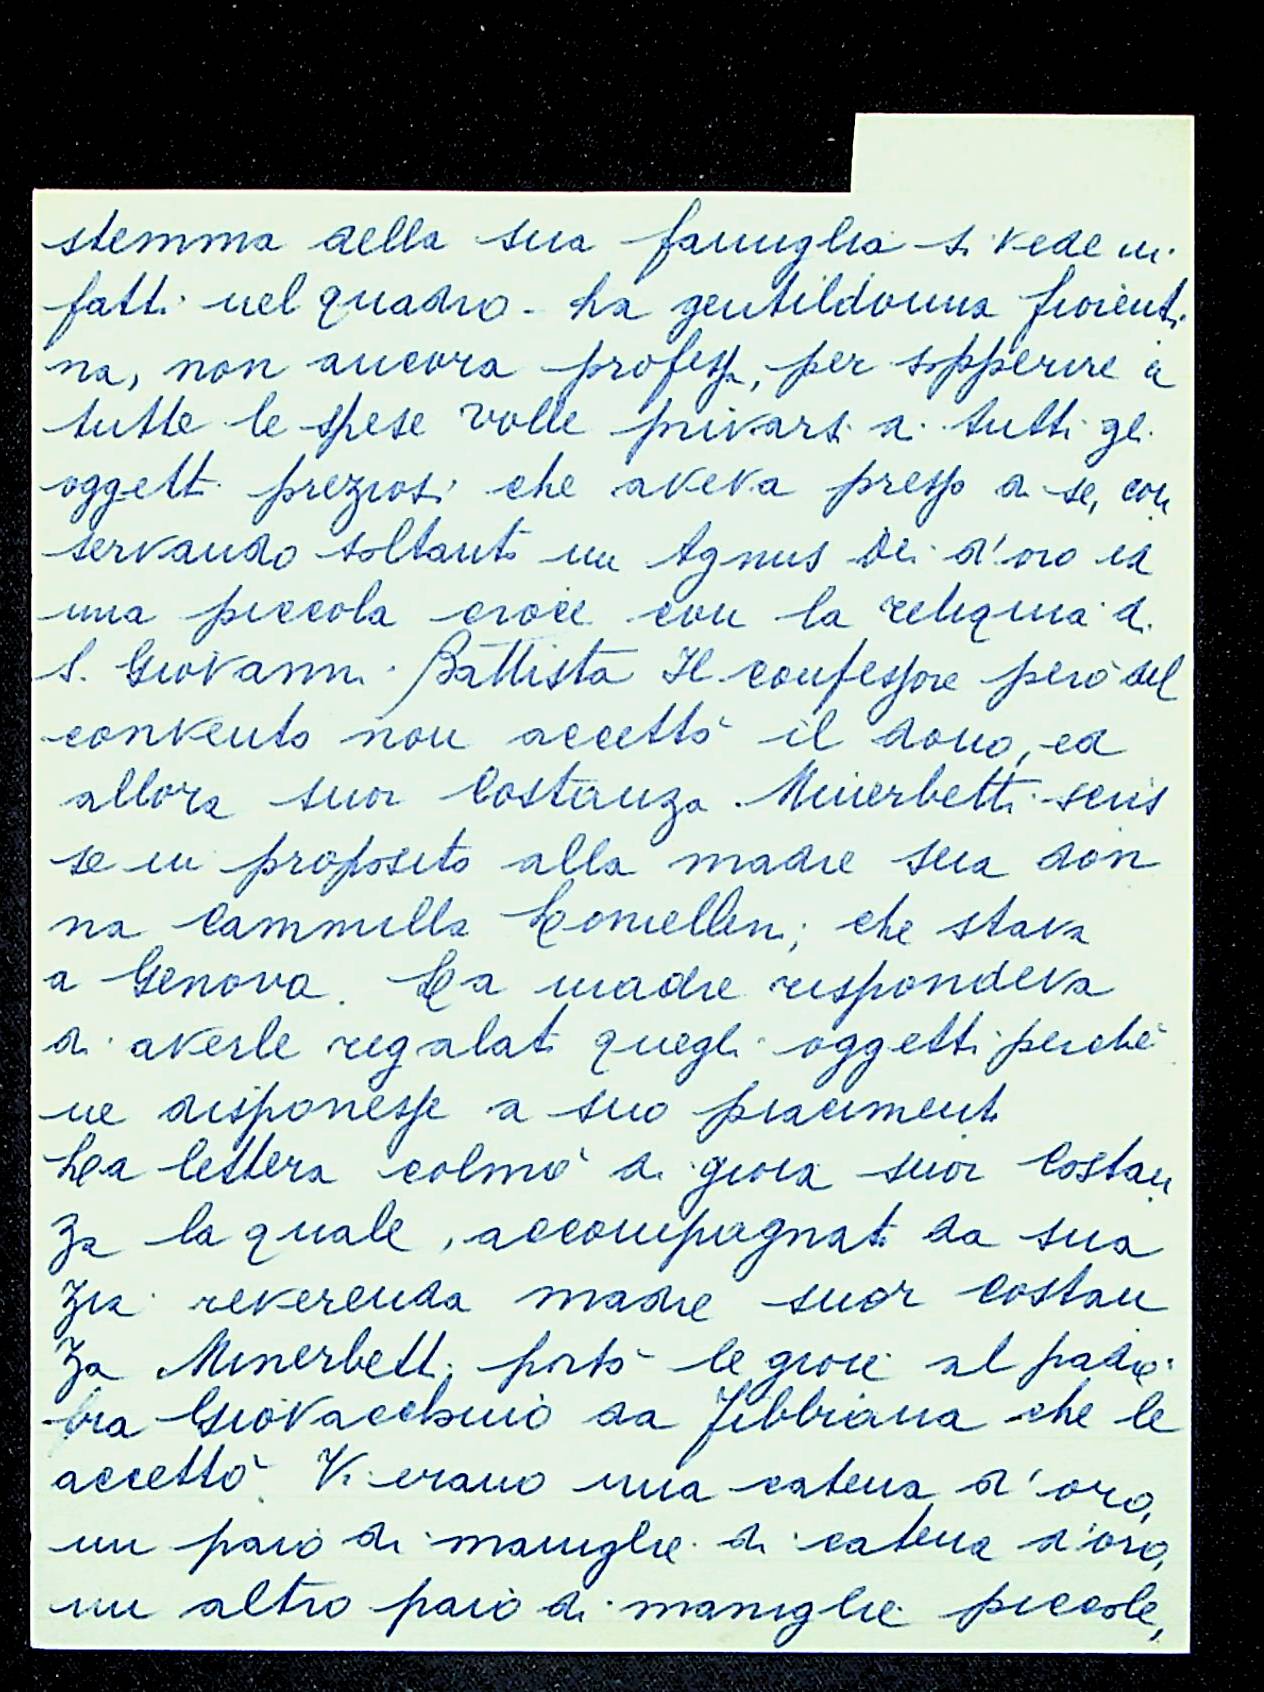 stemma della sua famiglia si vede in
fatti nel quadro. La gentildonna fiorenti
na, non ancora professa, per sopperire a
tutte le spese volle privarsi di tutti gli
oggetti preziosi che aveva presso di se, con
servando soltanto un Agnus Dei d'oro ed
una piccola croce con la reliquia di
S. Giovanni Battista Il confessore però del
convento non accettò il dono, ed
allora suor Costanza Minerbetti scris
se in proposito alla madre sua don
na Cammilla Lomellini, che stava
a Genova. La madre rispondeva
di averle regalati quegli oggetti perchè
ne disponesse a suo piacimento
La lettera colmò di gioia suor Costan
za la quale, accompagnata da sua
zia reverenda madre suor Costan
za Minerbetti, portò le gioie al padre
fra Giovacchino da Fibbiana che le
accettò. Vi erano una catena d'oro,
un paio di maniglie di catena d'oro,
un altro paio di maniglie piccole,